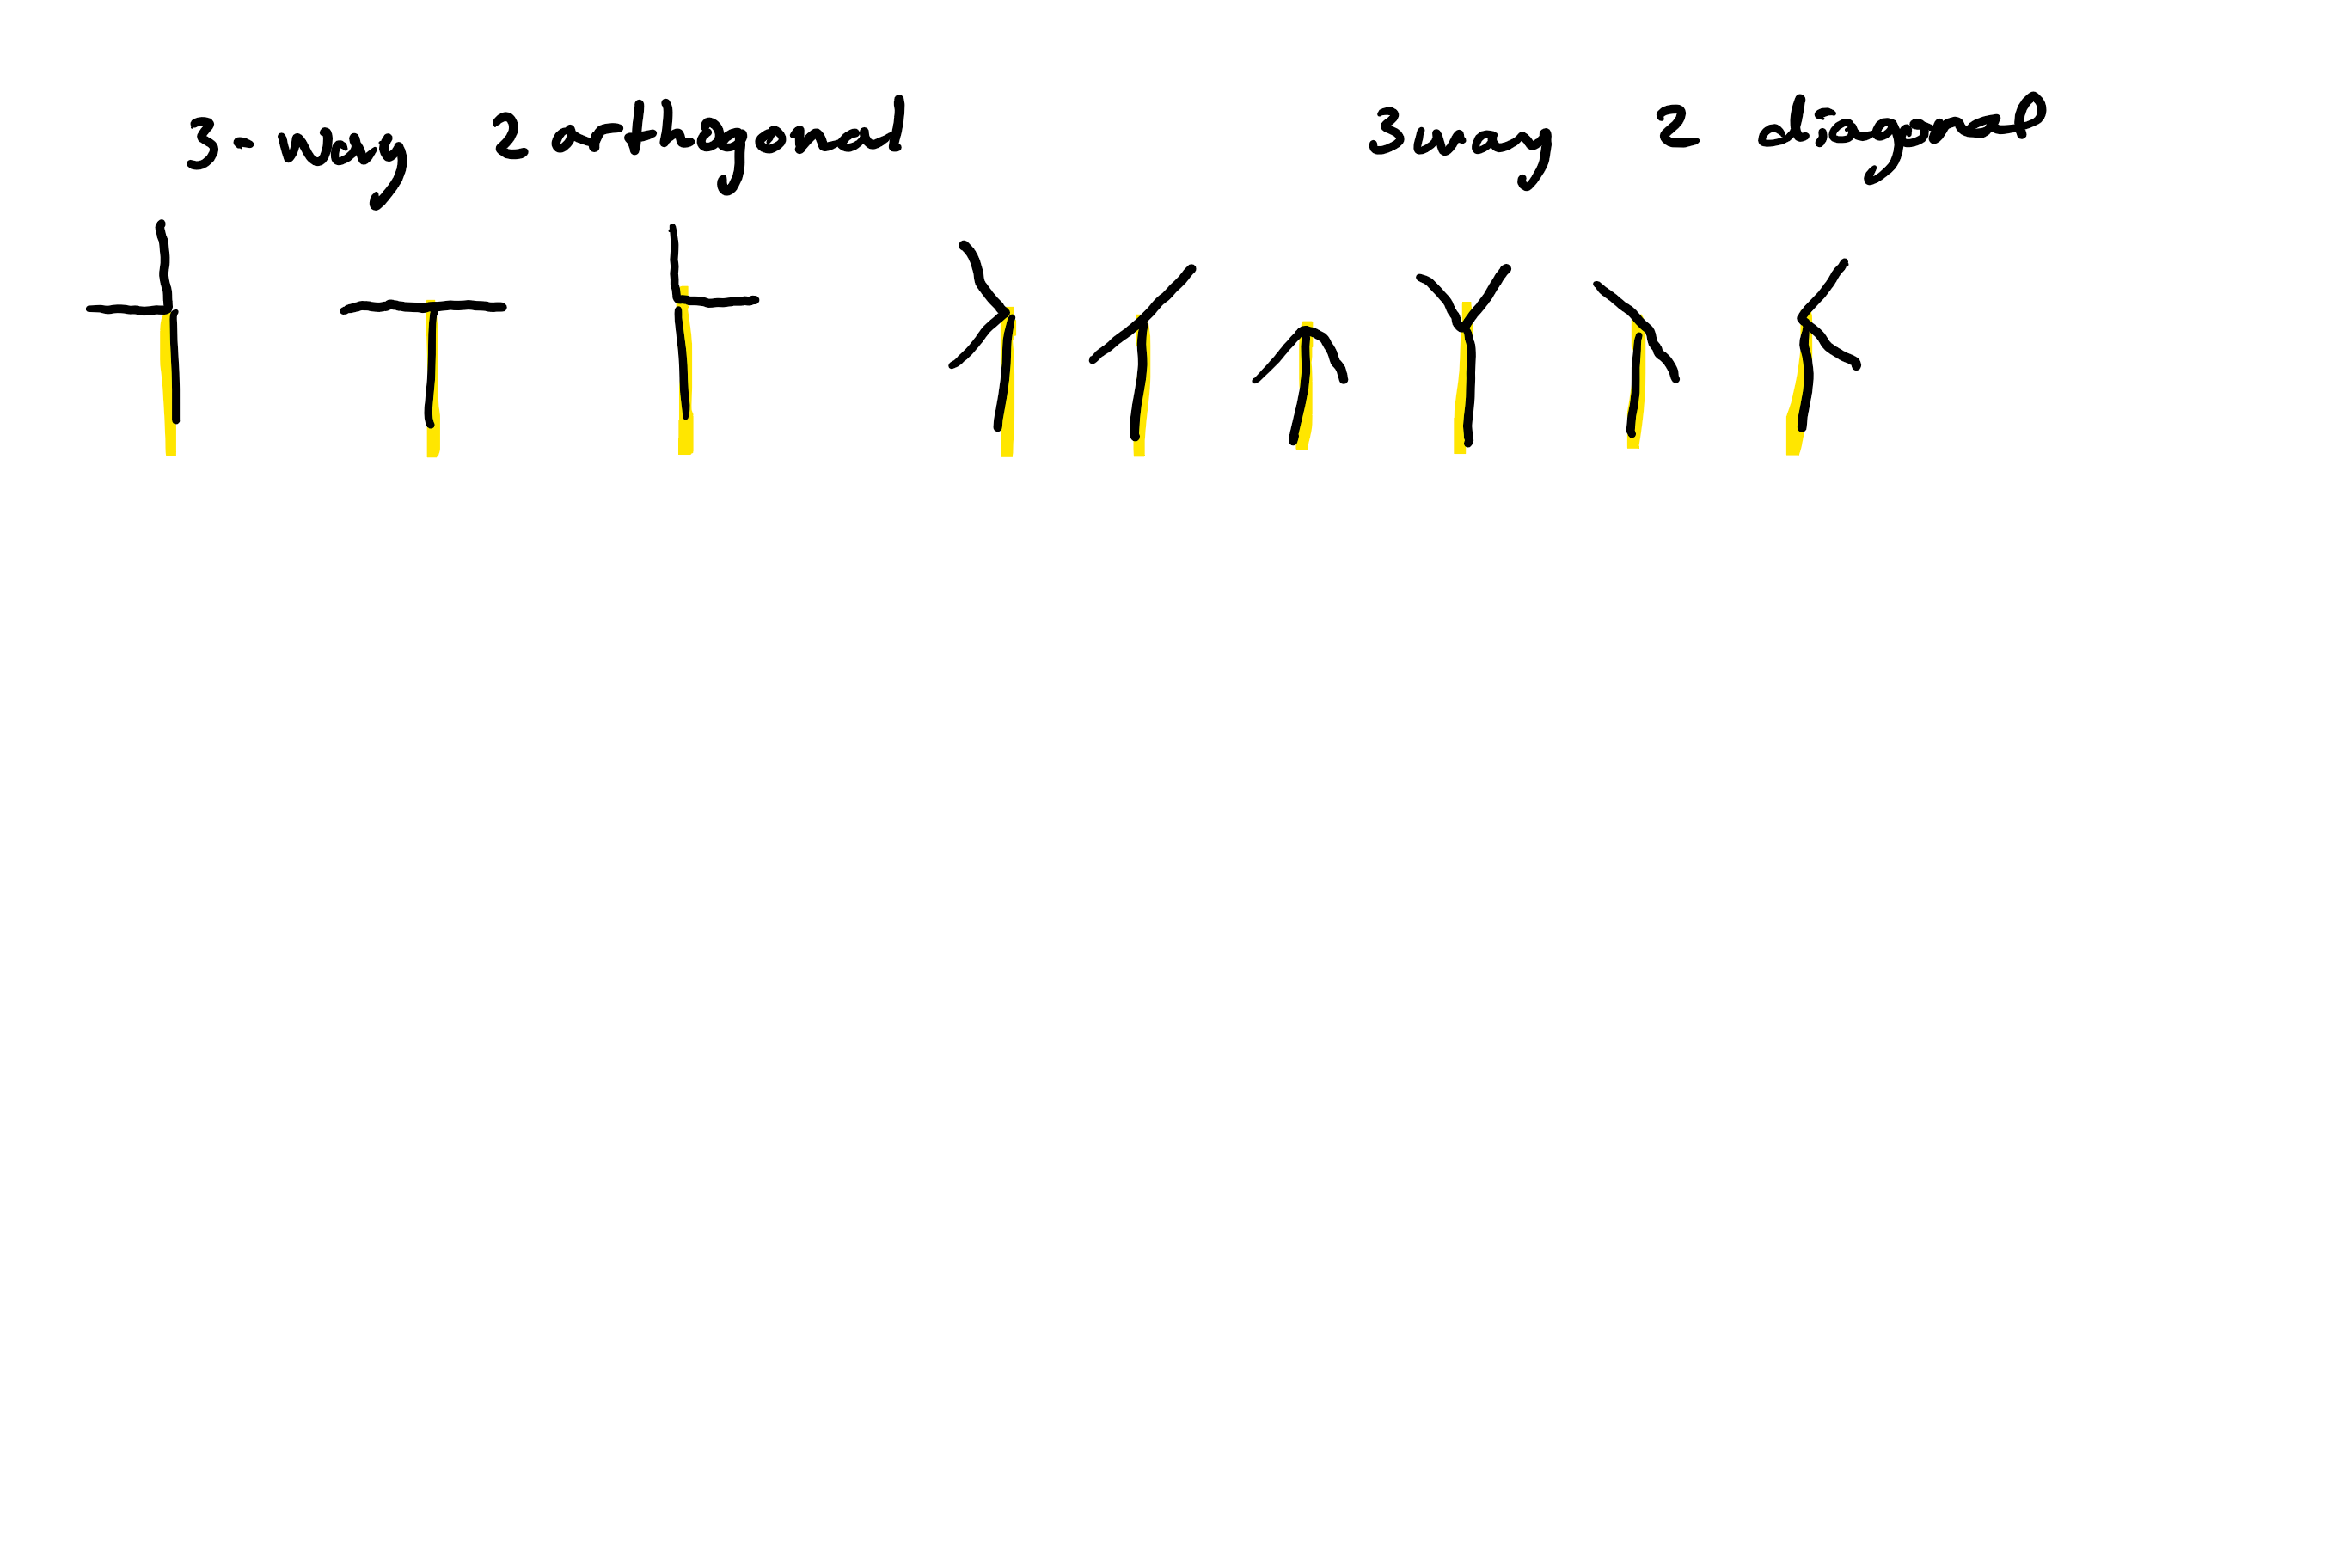 3-way 2 orthogonal
3 way 2 diagonal